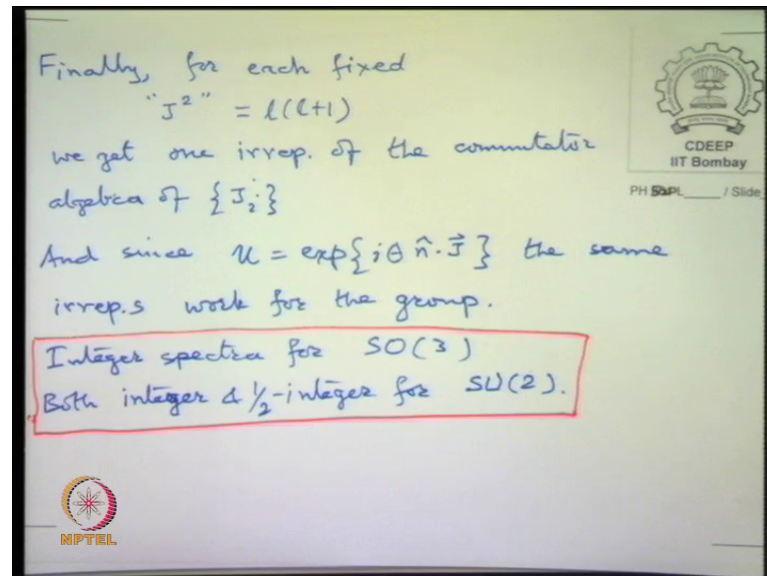 Finally, for each fixed
"J²" = l(l+1)
we get one irrep. of the commutator
algebra of {J_i}
And since U = exp{iθ n̂·J⃗} the same
irrep.s work for the group.
Integer spectra for SO(3)
Both integer & ½-integer for SU(2).
CDEEP
IIT Bombay
PH / Slide
NPTEL